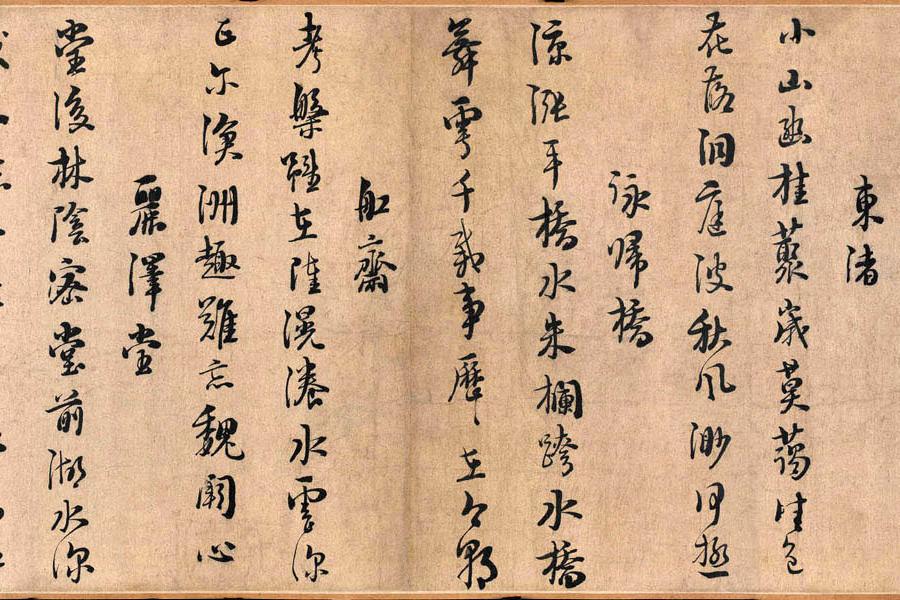 東渚
小山幽桂叢歲莫藹佳色
花落洞庭波秋風渺何極
詠歸橋
涼漲平橋水朱欄跨水橋
舞雩千載事歷〻在今朝
舡齋
考槃雖在陸滉瀁水雲深
正尔滄洲趣難忘魏闕心
麗澤堂
堂後林陰密堂前湖水深